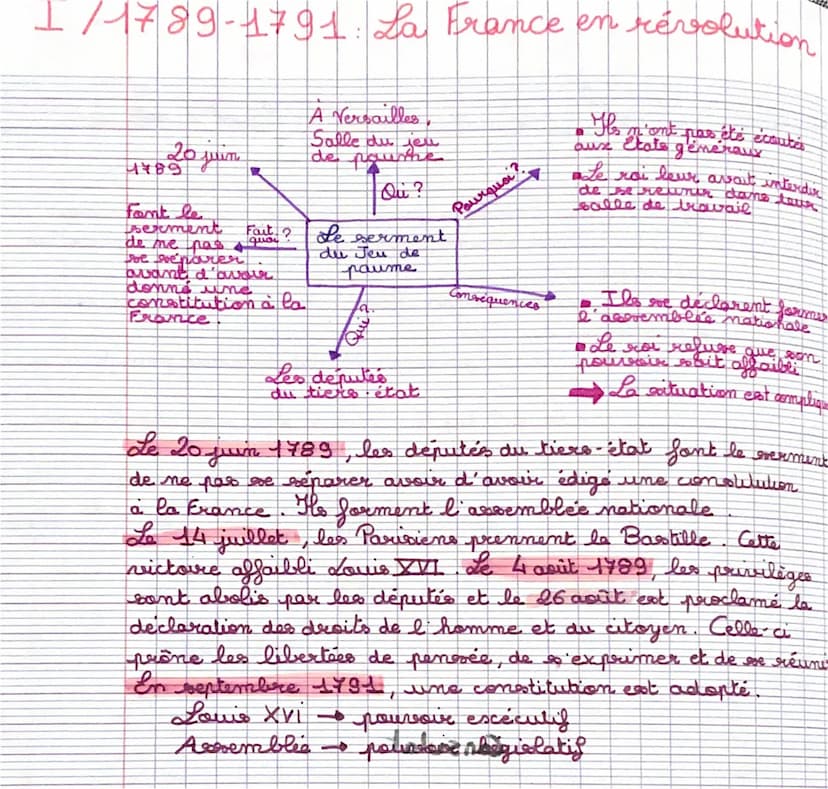 I / 1789-1791 : La France en révolution
À Versailles,
Salle du jeu
de paume
20 juin
1789
Où ?
Pourquoi ?
▪ Ils n'ont pas été écouté
aux Etats généraux
▪ Le roi leur avait interdir
de se reunir dans leur
salle de travail
Font le
serment
de ne pas
se séparer
avant d'avoir
donné une
constitution à la
France.
Fait
quoi ?
Le serment
du Jeu de
paume
Conséquences
▪ Ils se déclarent former
l'assemblée nationale
▪ Le roi refuse que son
pouvoir soit affaibli
➡ La situation est complique
Qui ?
Les députés
du tiers-état
Le 20 juin 1789, les députés du tiers-état font le serment
de ne pas se séparer avoir d'avoir édigé une constitution
à la France. Ils forment l'assemblée nationale.
Le 14 juillet, les Parisiens prennent la Bastille. Cette
victoire affaibli Louis XVI. Le 4 août 1789, les privilèges
sont abolis par les députés et le 26 août est proclamé la
déclaration des droits de l'homme et du citoyen. Celle-ci
prône les libertées de pensée, de s'exprimer et de se réuni
En septembre 1791, une constitution est adopté.
Louis XVI → pouvoir escécutif
Assemblée → législatif